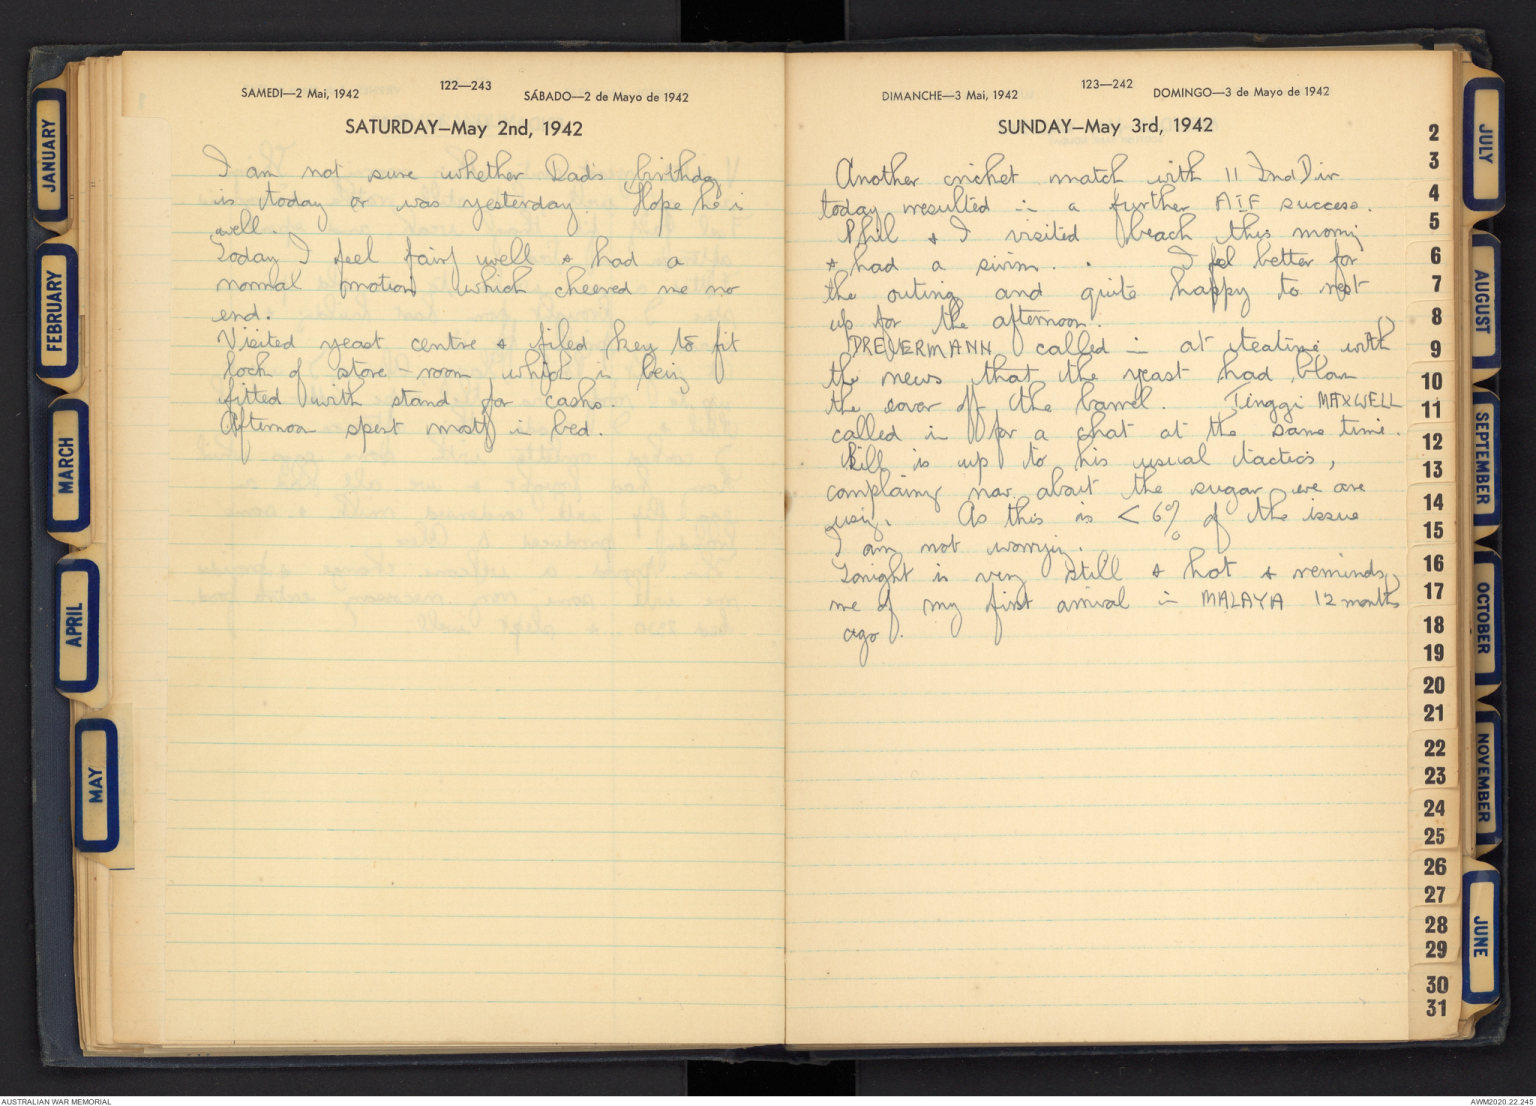 SAMEDI—2 Mai, 1942
122—243
SÁBADO—2 de Mayo de 1942
SATURDAY—May 2nd, 1942
I am not sure whether Dad's birthday
is today or was yesterday. Hope he is
well.
Today I feel fairly well & had a
normal motion which cheered me no
end.
Visited yeast centre & filed key to fit
lock of store-room which is being
fitted with stand for casks.
Afternoon spent mostly in bed.
DIMANCHE—3 Mai, 1942
123—242
DOMINGO—3 de Mayo de 1942
SUNDAY—May 3rd, 1942
Another cricket match with 11 Ind Div
today resulted in a further AIF success.
Phil & I visited beach this morning
& had a swim. I feel better for
the outing and quite happy to rest
up for the afternoon.
DREVERMANN called in at teatime with
the news that the yeast had blown
the cover off the barrel. Tinggi MAXWELL
called in for a chat at the same time.
Bill is up to his usual tactics,
complaining now about the sugar we are
using. As this is < 6% of the issue
I am not worrying.
Tonight is very still & hot & reminds
me of my first arrival in MALAYA 12 months
ago.
JANUARY
FEBRUARY
MARCH
APRIL
MAY
2
3
4
5
6
7
8
9
10
11
12
13
14
15
16
17
18
19
20
21
22
23
24
25
26
27
28
29
30
31
JULY
AUGUST
SEPTEMBER
OCTOBER
NOVEMBER
JUNE
AUSTRALIAN WAR MEMORIAL
AWM2020.22.245